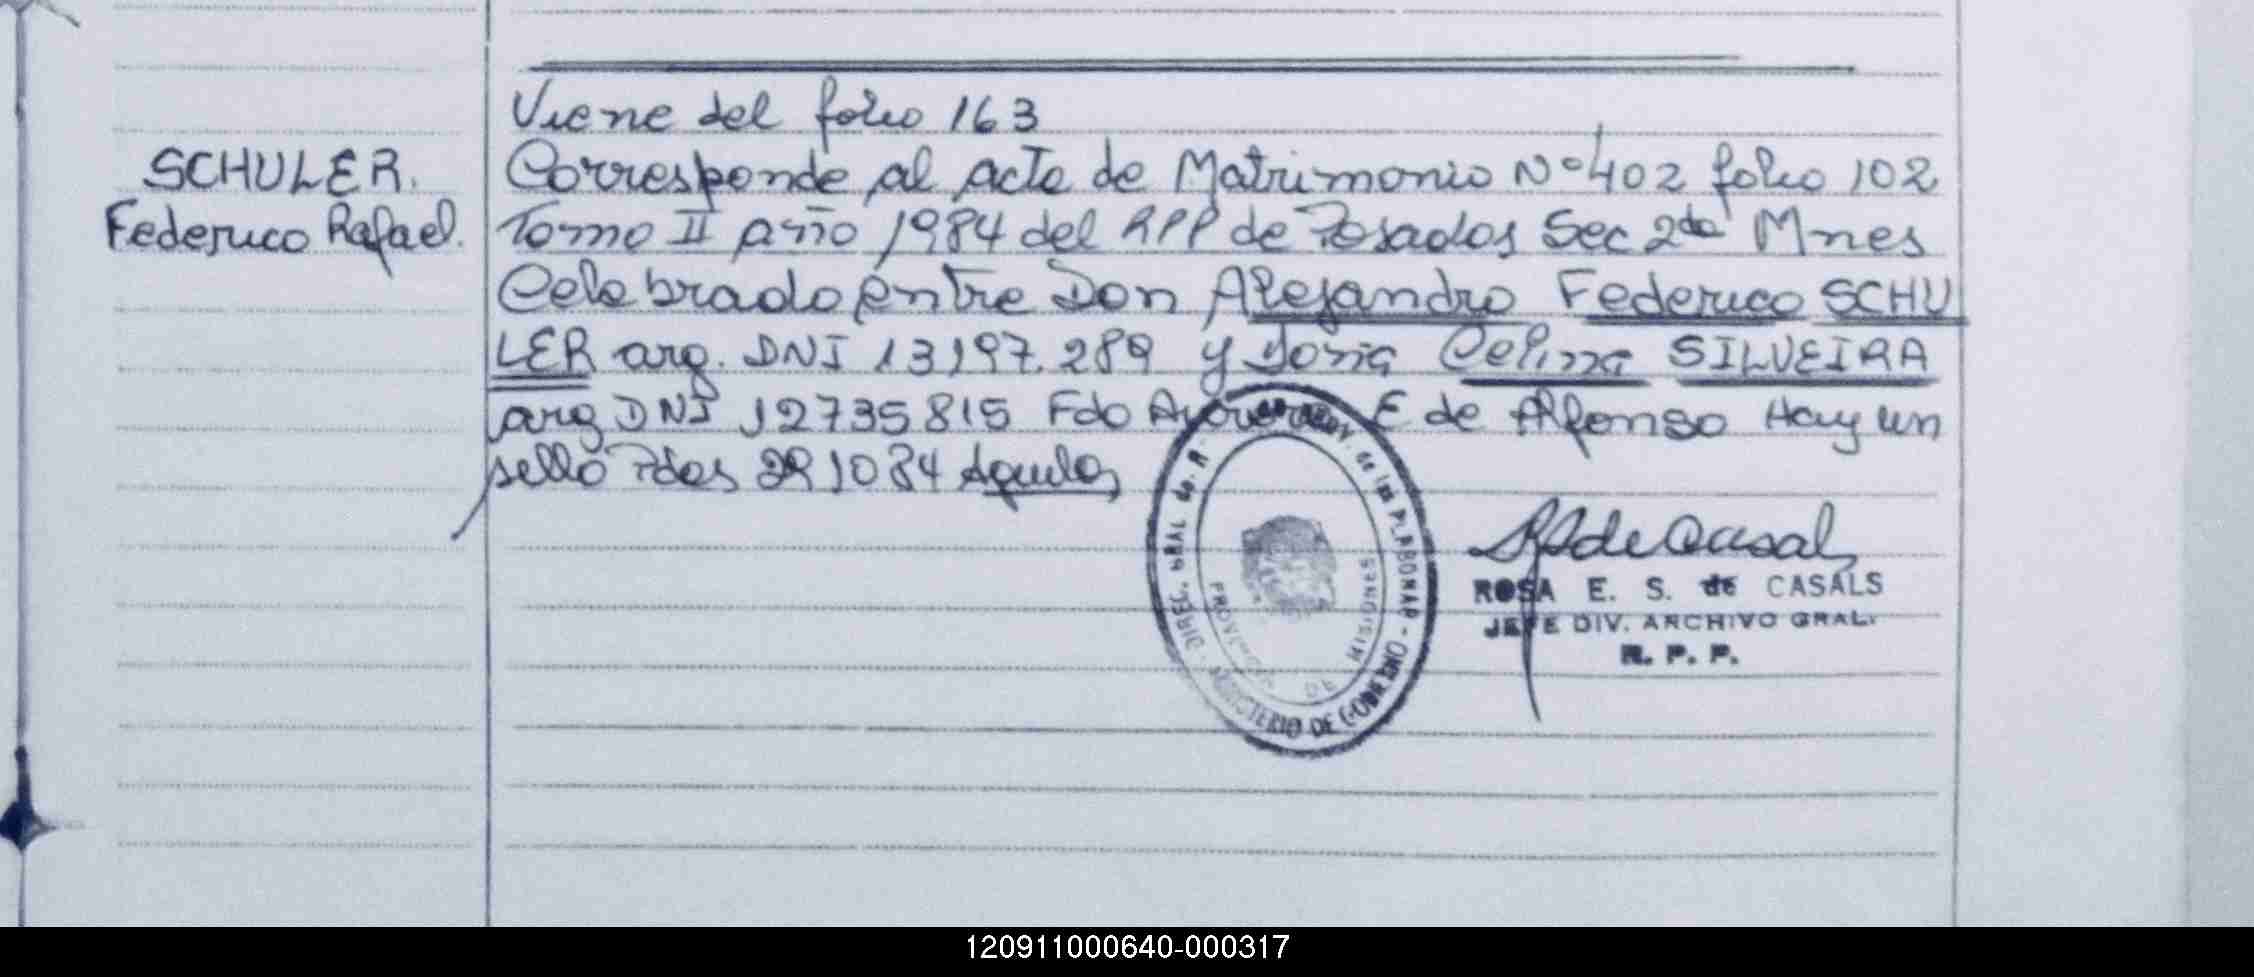 Viene del folio 163
SCHULER.
Federico Rafael.
Corresponde al acta de Matrimonio Nº 402 folio 102
Tomo II año 1984 del RPP de Posadas Sec 2da Mnes
Celebrado entre Don Alejandro Federico SCHU
LER arg. DNI 13197.289 y Doña Celina SILVEIRA
arg DNI 12735815 Fdo E de Alfonso Hay un
sello Pdas 291084
DIREC. GRAL de. R PROV. de las PERSONAS - MINISTERIO DE GOBIERNO -
PROVINCIA DE MISIONES
ROSA E. S. de CASALS
JEFE DIV. ARCHIVO GRAL.
R. P. P.
120911000640-000317